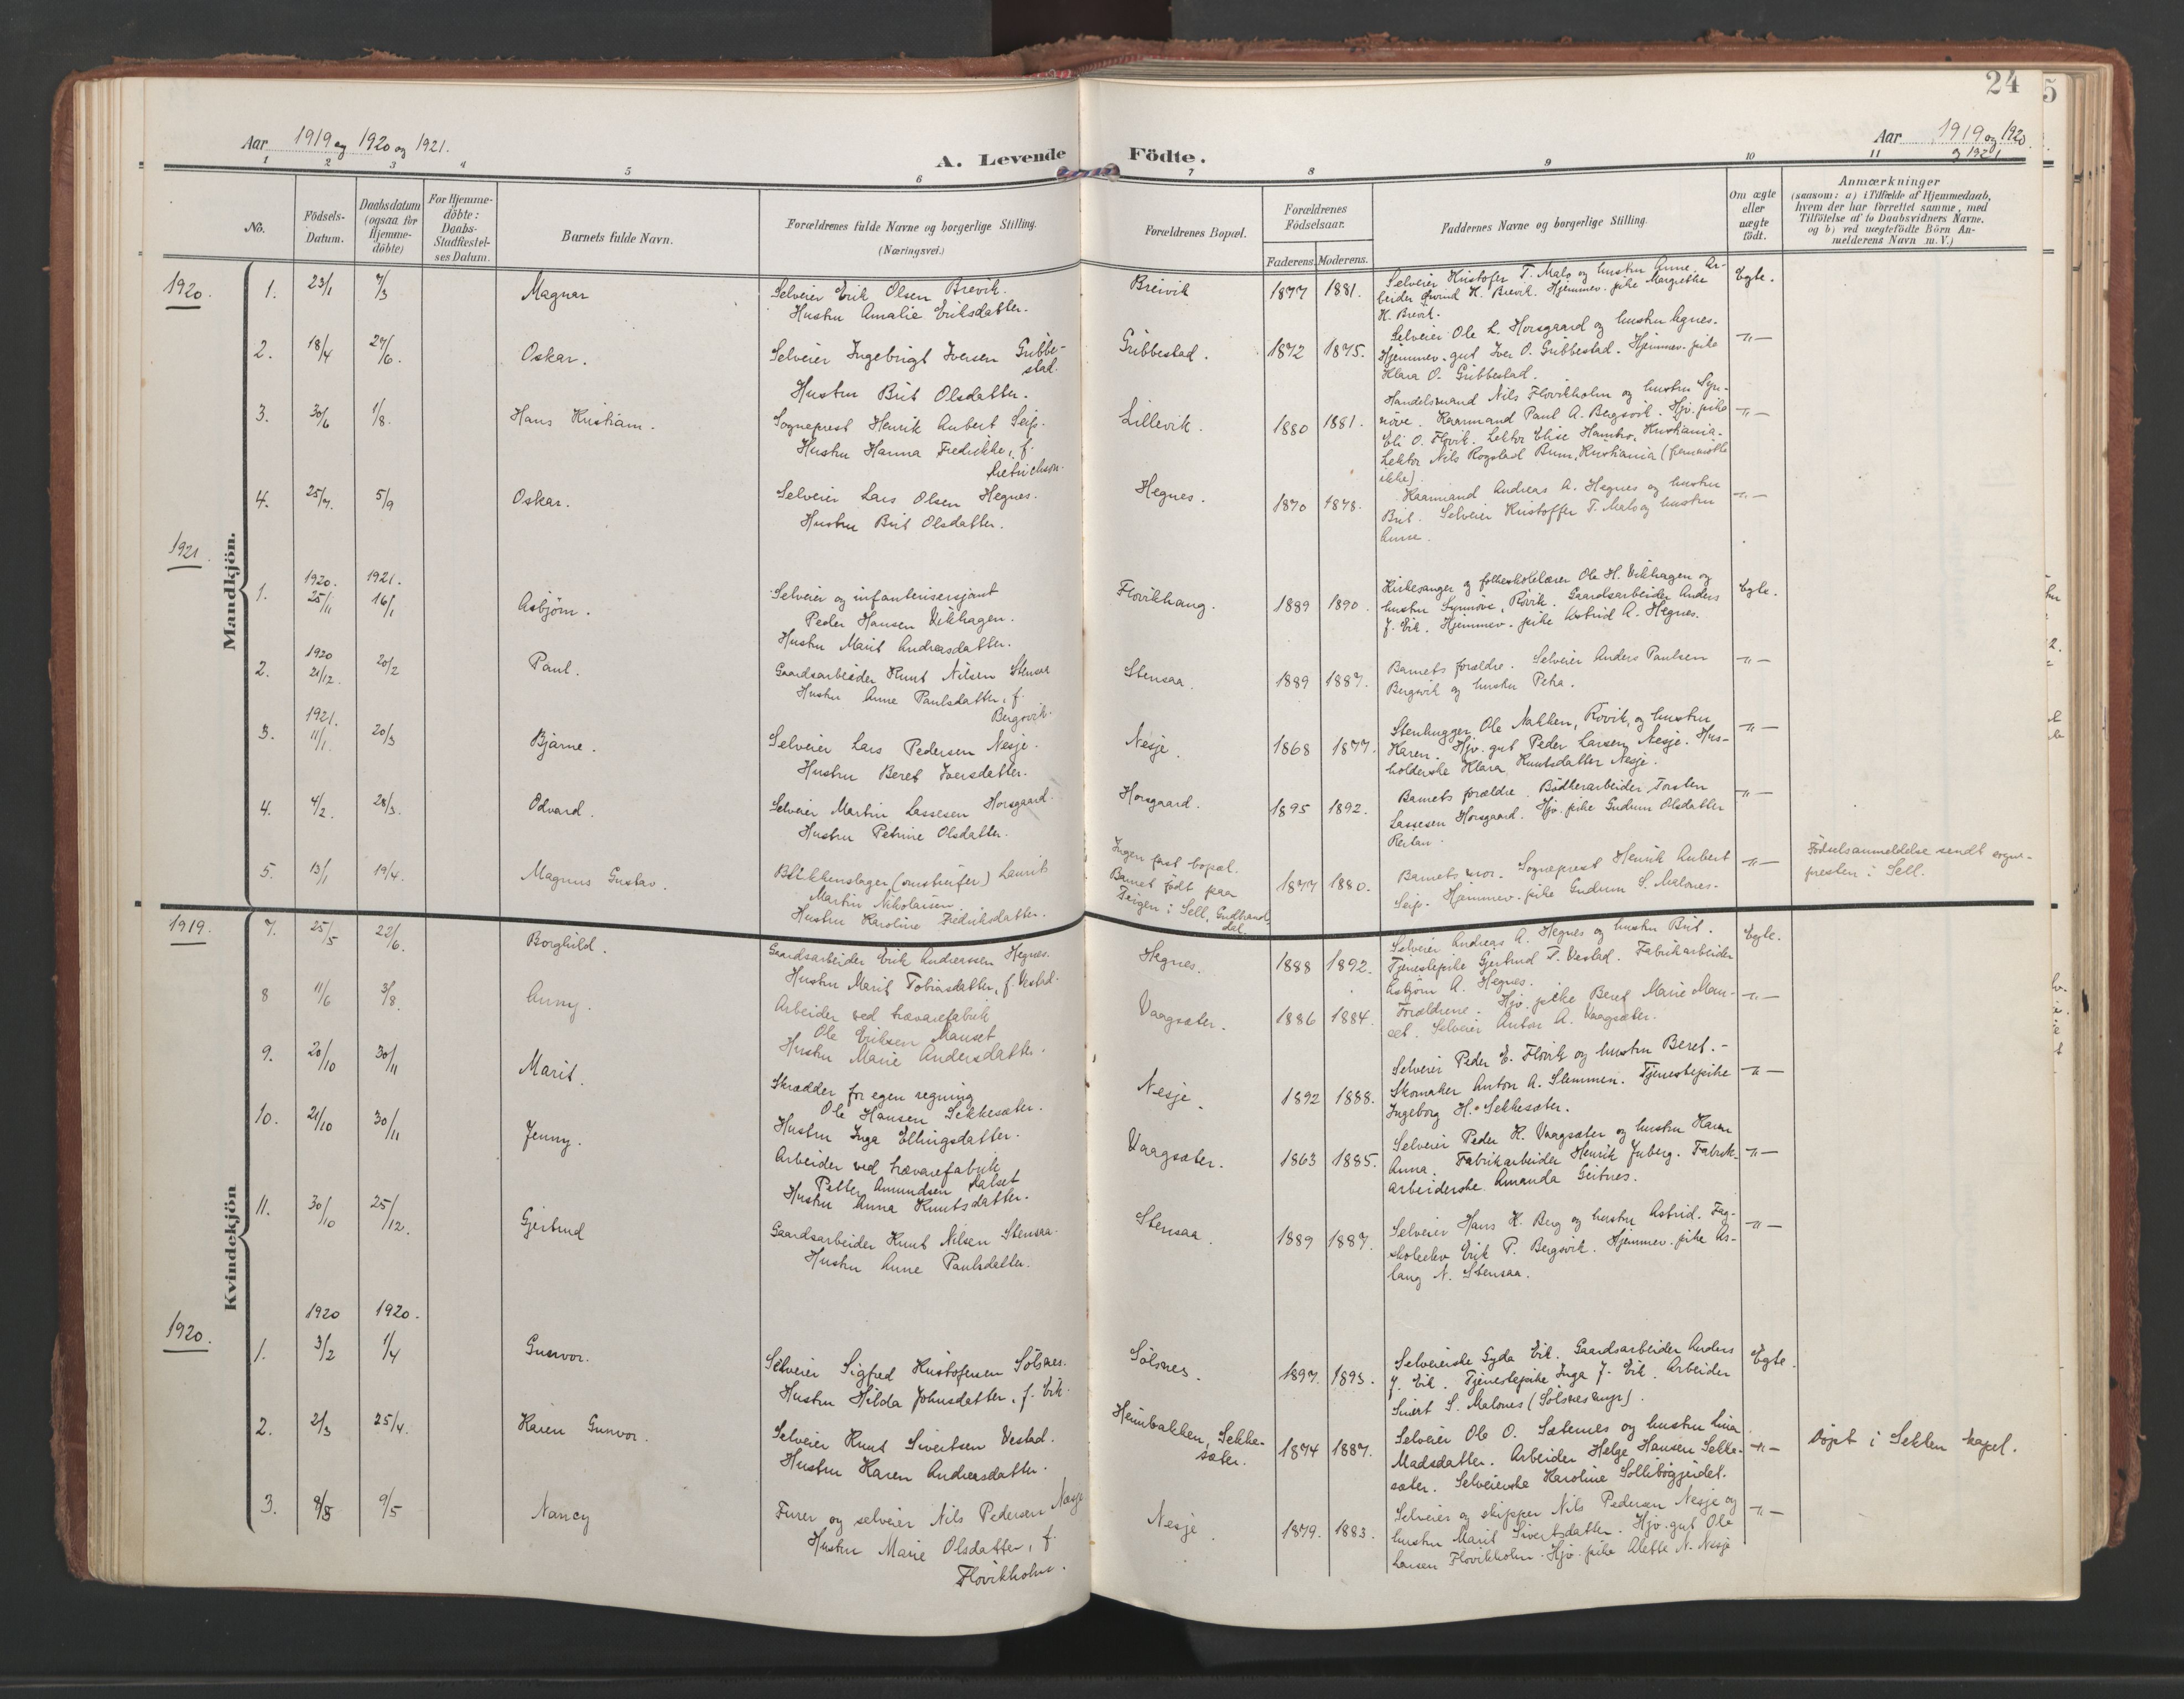 24
5
Aar 1919 og 1920 og 1921.
A. Levende Födte.
Aar 1919 og 1920
og 1921
1 2 3 4 5 6 7 8 9 10 11
No.
Födsels-
Datum.
Daabsdatum
(ogsaa for
Hjemme-
döbte)
For Hjemme-
döbte:
Daabs-
Stadfæstel-
ses Datum.
Barnets fulde Navn.
Forældrenes fulde Navne og borgerlige Stilling.
(Næringsvei.)
Forældrenes Bopæl.
Forældrenes
Födselsaar.
Faderens. Moderens.
Faddernes Navne og borgerlige Stilling.
Om ægte
eller
uægte
födt.
Anmærkninger
(saasom: a) i Tilfælde af Hjemmedaab,
hvem der har forrettet samme, med
Tilföielse af to Daabsvidners Navne,
og b) ved uægtefödte Börn An-
melderens Navn m. V.)
Mandkjön.
1920.
1. 23/1 7/3 Magnar
Selveier Erik Olsen Brevik.
Hustru Amalie Eriksdatter.
Breivik 1877 1881.
Selveier Kristofer T. Malo og hustru Anne. Ar-
beider Øivind K. Brevik. Hjemmev. pike Margrethe
K. Brevik.
Egte.
2. 18/4 27/6. Oskar.
Selveier Ingebrigt Iversen Gribbe-
stad.
Hustru Brit Olsdatter.
Gribbestad. 1872 1875.
Selveier Ole L. Horsgaard og hustru Agnes.
Hjemmev. gut Iver O. Gribbestad. Hjemmev. pike
Klara O. Gribbestad.
-"-
3. 30/6 1/8. Hans Kristian.
Sogneprest Henrik Aubert Seip.
Hustru Hanna Fredrikke, f.
Dietrichson.
Lillevik. 1880 1881.
Handelsmand Nils Flovikholm og hustru Syn-
növe. Kaarmand Paul A. Bergsvik. Hjv. pike
Eli O. Flovik. Lektor Elise Hambro, Kristiania.
Lektor Nils Rogstad Brun, Kristiania (fremmötte
ikke).
-"-
4. 25/7. 5/9 Oskar.
Selveier Lars Olsen Hegnes.
Hustru Brit Olsdatter.
Hegnes. 1870 1878.
Kaarmand Andreas A. Hegnes og hustru
Brit. Selveier Kristoffer T. Malo og hustru
Anne.
-"-
1921.
1. 1920. 25/11 1921. 16/1 Asbjörn.
Selveier og infanterisersjant
Peder Hansen Vikhagen.
Hustru Marit Andreasdatter.
Flovikhaug. 1889 1890.
Kirkesanger og folkeskolelærer Ole H. Vikhagen og
hustru Synnöve, Rövik. Gaardsarbeider Anders
J. Eik. Hjemmev. pike Astrid A. Hegnes.
Egte.
2. 1920 21/12. 20/2 Paul.
Gaardsarbeider Knut Nilsen Stensaa
Hustru Anne Paulsdatter, f.
Bergsvik.
Stensaa. 1889 1887.
Barnets forældre. Selveier Anders Paulsen
Bergsvik og hustru Petra.
-"-
3. 1921. 11/1. 20/3 Bjarne.
Selveier Lars Pedersen Nesje.
Hustru Beret Iversdatter.
Nesje. 1868 1877.
Stenhugger Ole Nakken, Rövik, og hustru
Karen. Hjv. gut Peder Larsen Nesje. Hus-
holderske Klara Knutsdatter Nesje.
-"-
4. 4/2. 28/3. Odvard.
Selveier Martin Lassesen Horsgaard.
Hustru Petrine Olsdatter.
Horsgaard. 1895 1892.
Barnets forældre. Bödkerarbeider Torsten
Lassesen Horsgaard. Hjv. pike Gudrun Olsdatter
Reitan.
-"-
5. 13/1 19/4. Magnus Gustav.
Blikkenslager (omstreifer) Laurits
Martin Nikolaisen
Hustru Karoline Fredriksdatter.
Ingen fast bopæl.
Barnet födt paa
Teigen i Sell, Gudbrands-
dal.
1877 1880.
Barnets mor. Sogneprest Henrik Aubert
Seip. Hjemmev. pike Gudrun S. Malones.
-"-
Födselsanmeldelse sendt sogne-
presten i Sell.
Kvindekjön
1919.
7. 25/5 22/6. Borghild.
Gaardsarbeider Erik Andreassen Hegnes.
Hustru Marit Tobiasdatter, f. Vestad.
Hegnes. 1888 1892.
Selveier Andreas A. Hegnes og hustru Brit.
Tjenestepike Gjertrud T. Vestad. Fabrikarbeider
Asbjörn A. Hegnes.
Egte.
8 11/6 3/8. Anny.
Arbeider ved trævarefabrik
Ole Eriksen Mauset
Hustru Marie Andersdatter.
Vaagsæter. 1886 1884.
Forældrene. Hjv. pike Beret Marie Mau-
set. Selveier Anton A. Vaagsæter.
-"-
9. 20/10 30/11 Marit.
Skrædder for egen regning
Ole Hansen Sekkesæter.
Hustru Inga Ellingsdatter.
Nesje. 1892 1888.
Selveier Peder E. Flovik og hustru Beret.-
Skomaker Anton A. Slemmen. Tjenestepike
Ingeborg H. Sekkesæter.
-"-
10. 21/10 30/11 Jenny.
Arbeider ved trævarefabrik
Petter Amundsen Dalset
Hustru Anna Knutsdatter.
Vaagsæter. 1863 1885.
Selveier Peder K. Vaagsæter og hustru Karen
Anna. Fabrikarbeider Henrik Juberg. Fabrik-
arbeiderske Amanda Geitnes.
-"-
11. 30/10 25/12. Gjertrud
Gaardsarbeider Knut Nilsen Stensaa.
Hustru Anne Paulsdatter.
Stensaa. 1889 1887.
Selveier Hans K. Berg og hustru Astrid. Fag-
skoleelev Erik P. Bergsvik. Hjemmev. pike As-
laug N. Stensaa.
-"-
1920.
1. 1920 3/2 1920. 1/4 Gunvor.
Selveier Sigfred Kristofersen Sölsnes.
Hustru Hilda Johnsdatter, f. Eik.
Sölsnes. 1897. 1893.
Selveierske Gyda Eik. Gaardsarbeider Anders
J. Eik. Tjenestepike Inga J. Eik. Arbeider
Sivert S. Malones (Sölsnes).
Egte.
2. 2/3 25/4. Karen Gunvor.
Selveier Knut Sivertsen Vestad.
Hustru Karen Andreasdatter.
Heimbakken, Sekke-
sæter.
1874 1887.
Selveier Ole O. Sæternes og hustru Lina
Madsdatter. Arbeider Helge Hansen Sekke-
sæter. Selveierske Karoline Sollibögjeidet.
-"-
Döpt i Sekken kapel.
3. 9/3 9/5 Nancy
Furer og selveier Nils Pedersen Nesje
Hustru Marie Olsdatter, f.
Flovikholm.
Nesje. 1879. 1883.
Selveier og skipper Nils Pedersen Nesje og
hustru Marit Sivertsdatter. Hjv. gut Ole
Larsen Flovikholm. Hjv. pike Alette N. Nesje
-"-